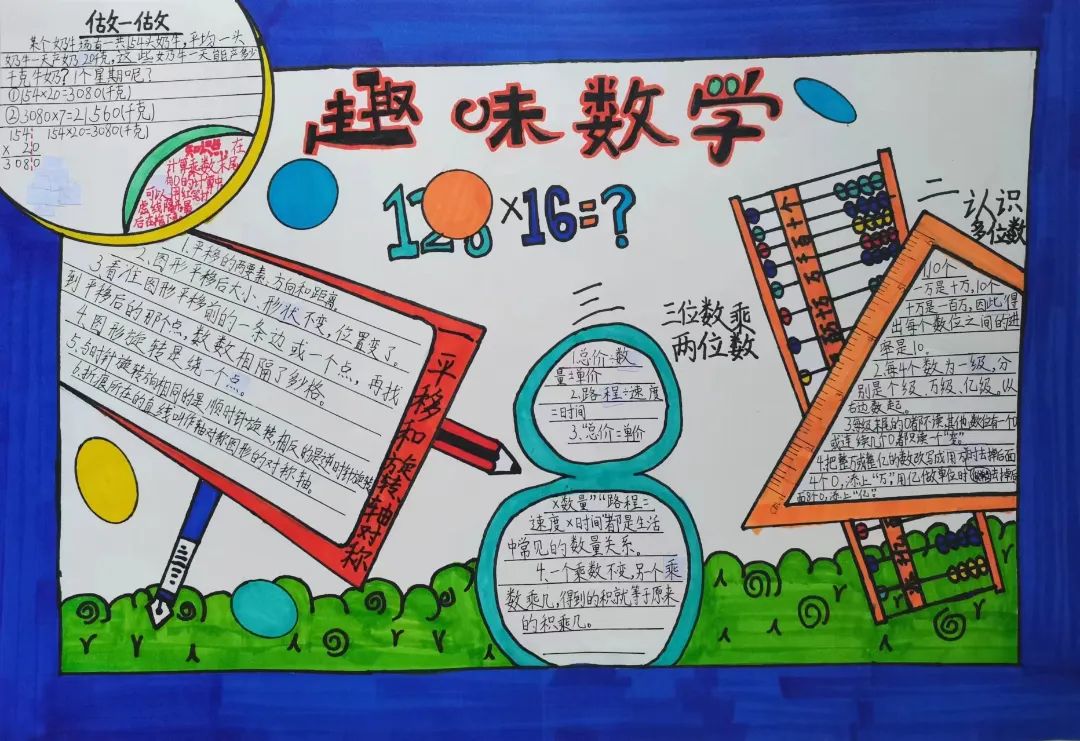 估一估
某个奶牛场有一共154头奶牛,平均一头
奶牛一天产奶20千克,这些奶牛一天自产多少
千克牛奶?1个星期呢?
①154×20=3080(千克)
②3080×7=21560(千克)
154 154×20=3080(千克)
× 20
3080
在
计算乘数末尾
有0的计算中
可以
趣味数学
128×16=?
1.平移的两要素:方向和距离。
2.图形平移后大小、形状不变,位置变了。
3.看住图形平移前的一条边或一个点,再找
到平移后的那个点,数数相隔了多少格。
4.图形旋转是绕一个点。
5.与时针旋转方向相同的是顺时针旋转,相反的是逆时针旋转
6.折痕所在的直线叫作轴对称图形的对称轴。
一 平移和旋转、轴对称
二 认识
多位数
个十百千万
1.10个
一万是十万,10个
十万是一百万,因此,得
出每个数位之间的进
率是10。
2.每4个数为一级,分
别是个级、万级、亿级。从
右边数起。
3.每级末尾的0都不读,其他数位有一个0
或连续几个0都只读一个“零”。
4.把整万或整亿的数改写成用万时去掉后面
4个0,添上“万”,用亿做单位时
面8个0,添上“亿”。
三
三位数乘
两位数
1.总价÷数
量=单价
2.路程÷速度
=时间
3.“总价=单价
×数量”“路程=
速度×时间”都是生活
中常见的数量关系。
4.一个乘数不变,另一个乘
数乘几,得到的积就等于原来
的积乘几。